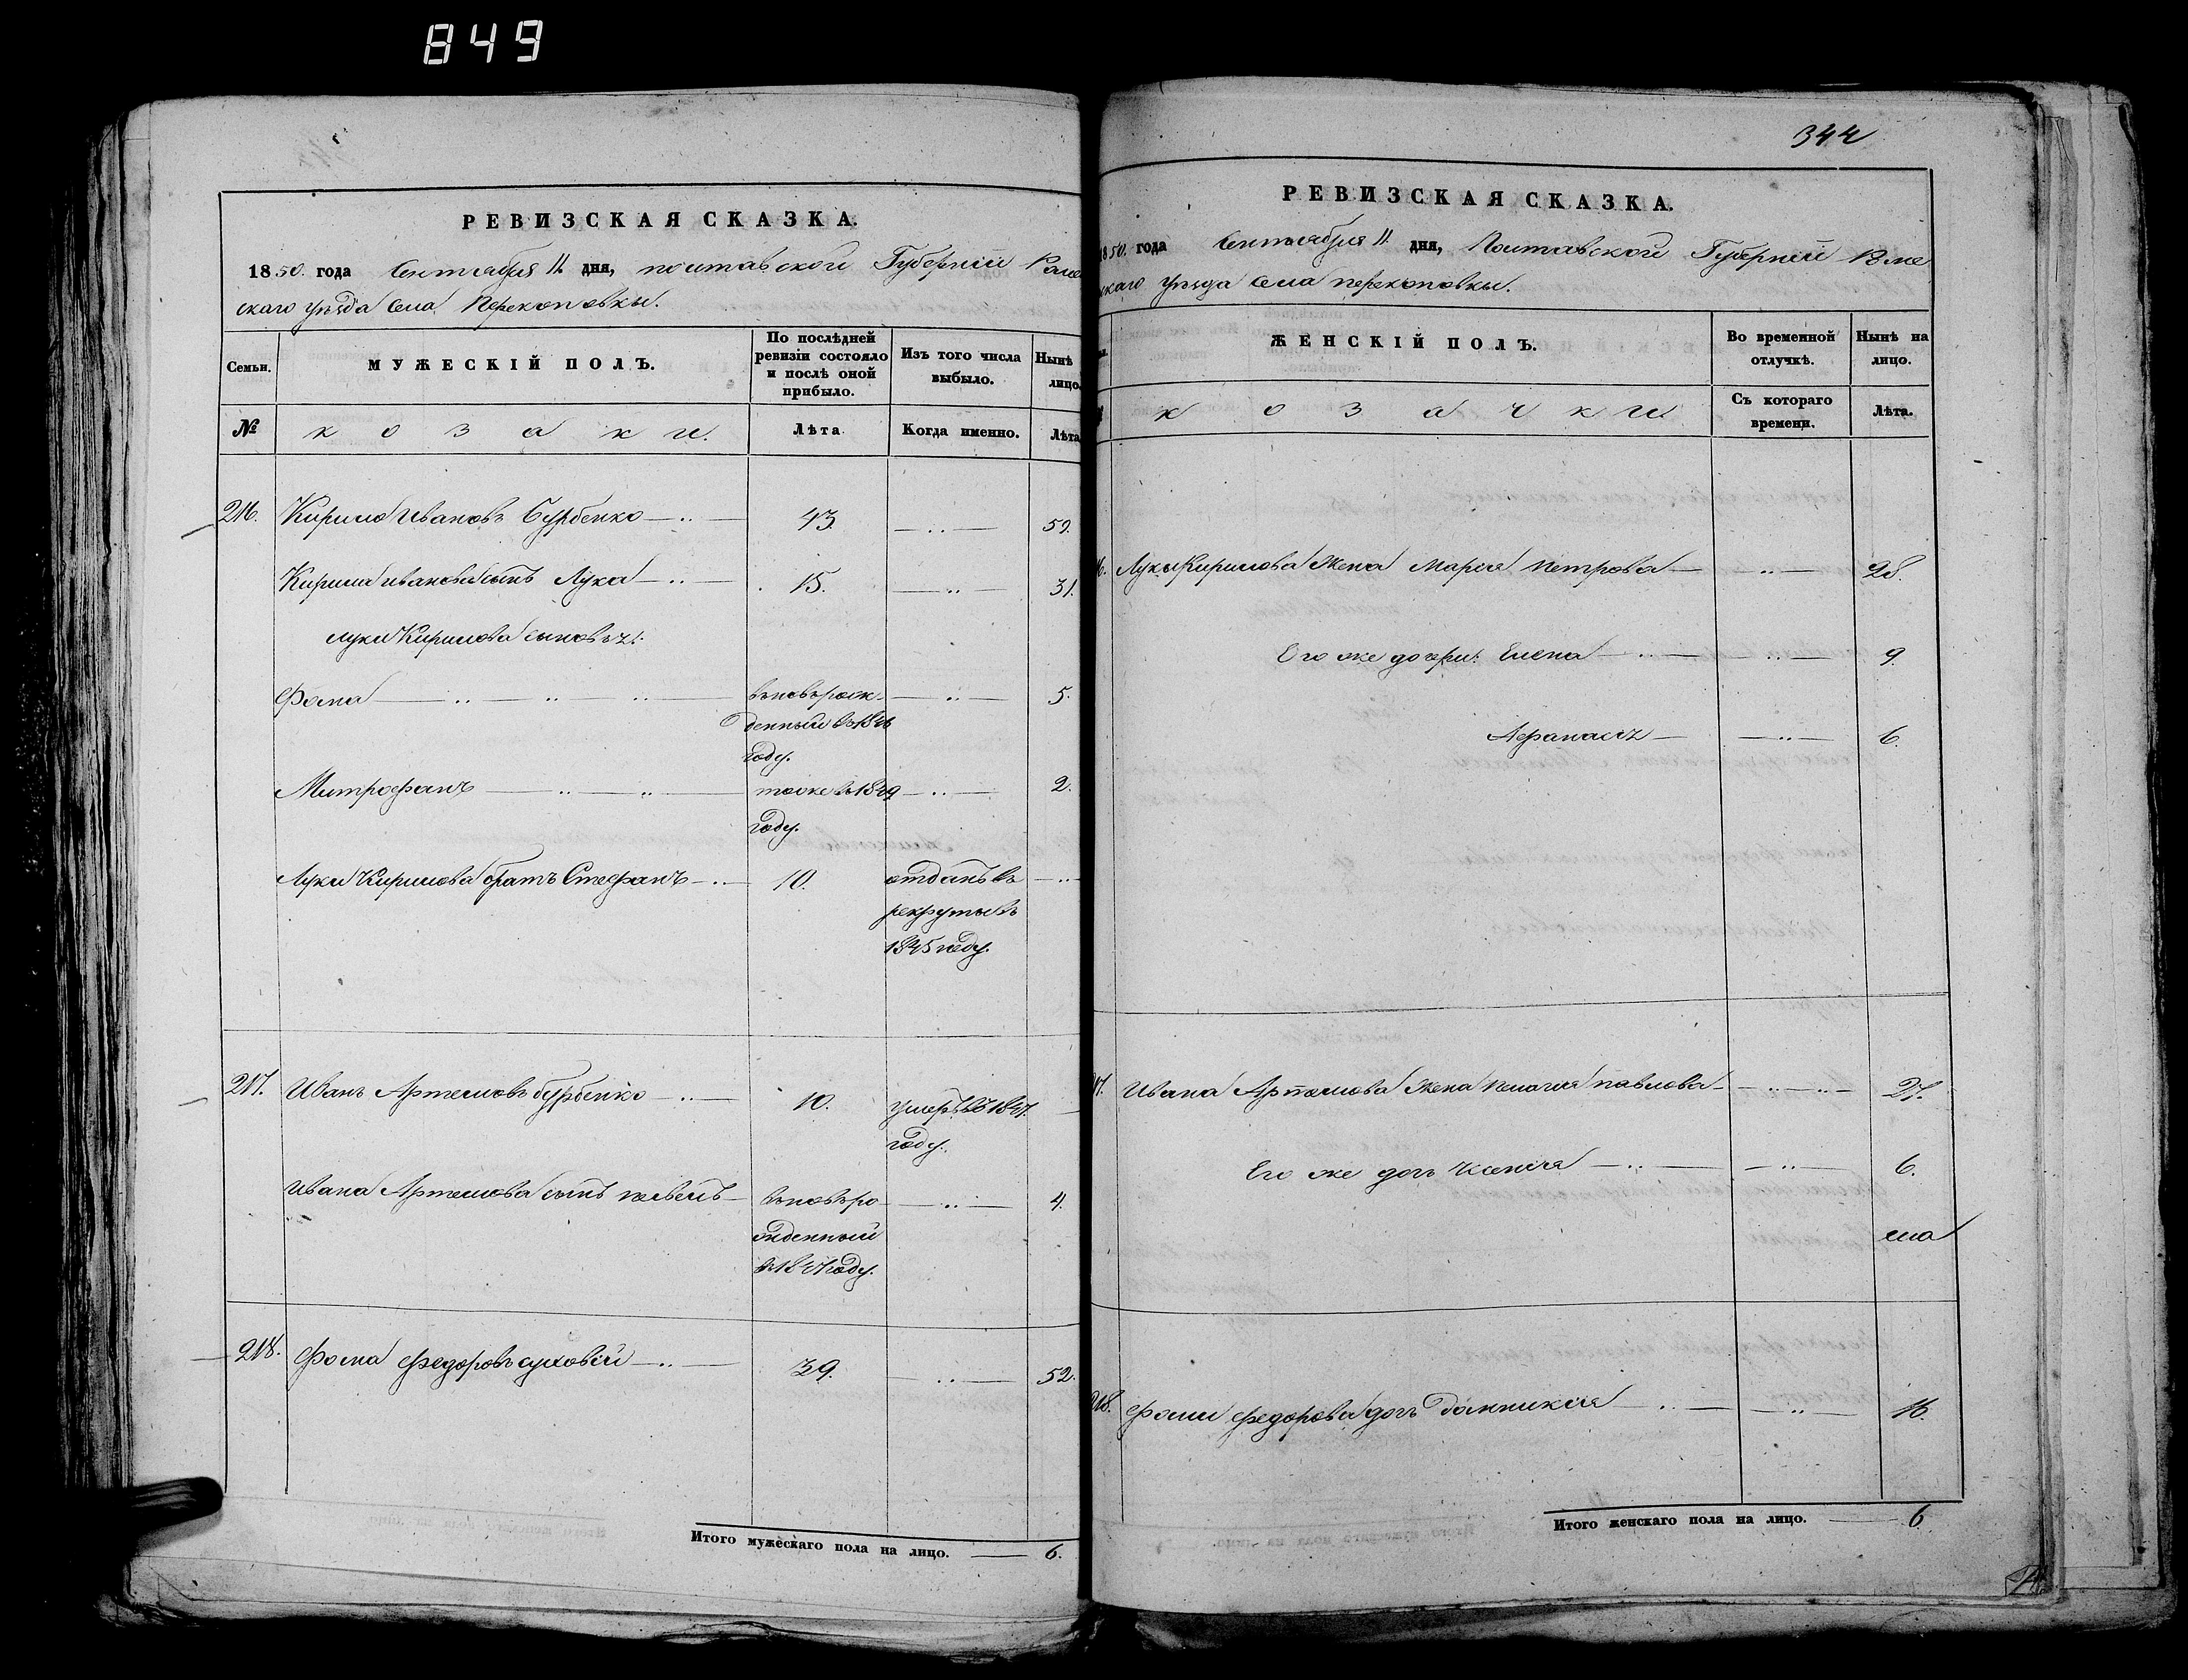 849
РЕВИЗСКАЯ СКАЗКА.
1850. года Сентября 11. дня, полтавской Губерніи Роме
скаго уѣзда Села Перекоповки.
Семьи.
МУЖЕСКІЙ ПОЛЪ.
По послѣдней
ревизіи состояло
и послѣ оной
прибыло.
Изъ того числа
выбыло.
Нынѣ
лицо.
№
козаки.
Лѣта
Когда именно.
Лѣта
216. Кирило Ивановъ Бурбенко 43. 59.
Кирила иванова сынъ Лука 15. 31.
луки Кирилова сыновья:
Фома вновьрож- 5.
денный въ 1846
году.
Митрофанъ тоже въ 1849 2.
году.
Луки Кирилова братъ Стефанъ 10. отданъ въ
рекруты въ
1845 году.
217. Иванъ Артемовъ бурбенко 10. умеръ въ 1847.
году.
Ивана Артемова сынъ павелъ вновьро 4.
жденный
въ 1847 году.
218. Фома федоровъ суховій 39. 52.
Итого мужескаго пола на лицо. 6.
344
РЕВИЗСКАЯ СКАЗКА.
1850. года Сентября 11. дня, Полтавской Губерніи Роме
скаго уѣзда Села перекоповки.
ЖЕНСКІЙ ПОЛЪ.
Во временной
отлучкѣ.
Нынѣ на
лицо.
козачки.
Съ котораго
времени.
Лѣта.
6. Луки Кирилова Жена Марія Петрова 28.
Его же дочери: Елена 9.
Афанасія 6.
17. Ивана Артемова Жена пелагія павлова 27.
Его же дочь Ксенія 6.
218. Фомы федорова дочь Домникія 16.
Итого женскаго пола на лицо. 6